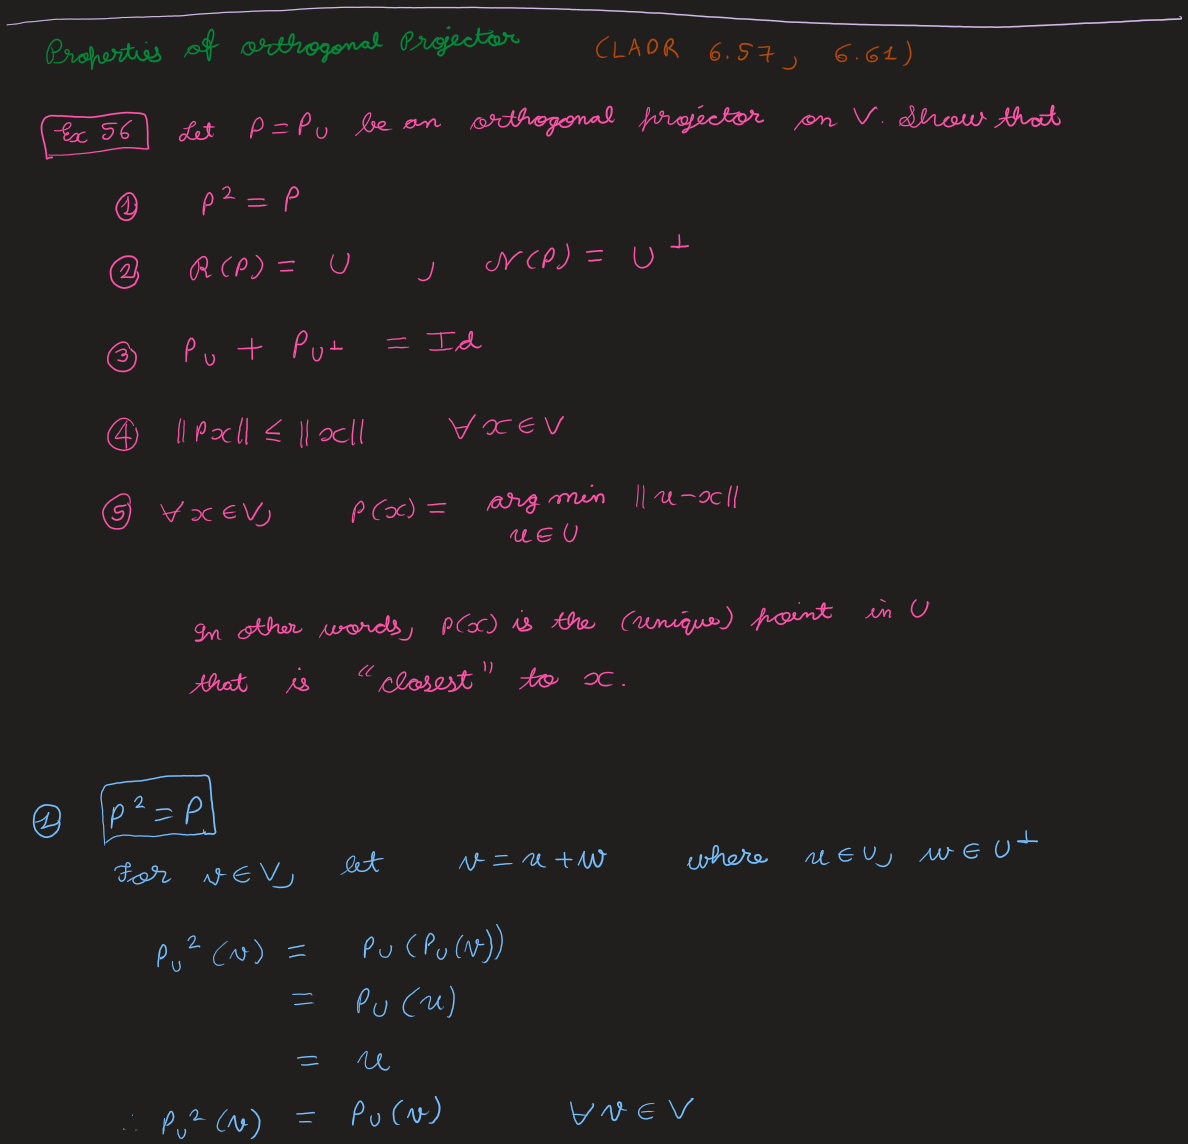 Properties of orthogonal Projector (LADR 6.57, 6.61)
Ex 56 Let P = P_U be an orthogonal projector on V. Show that
① P² = P
② R(P) = U , N(P) = U^⊥
③ P_U + P_U^⊥ = Id
④ ||Px|| ≤ ||x|| ∀ x ∈ V
⑤ ∀ x ∈ V, P(x) = arg min ||u-x||
u ∈ U
In other words, P(x) is the (unique) point in U
that is "closest" to x.
① P² = P
For v ∈ V, let v = u + w where u ∈ U, w ∈ U^⊥
P_U² (v) = P_U (P_U (v))
= P_U (u)
= u
∴ P_U² (v) = P_U (v) ∀ v ∈ V